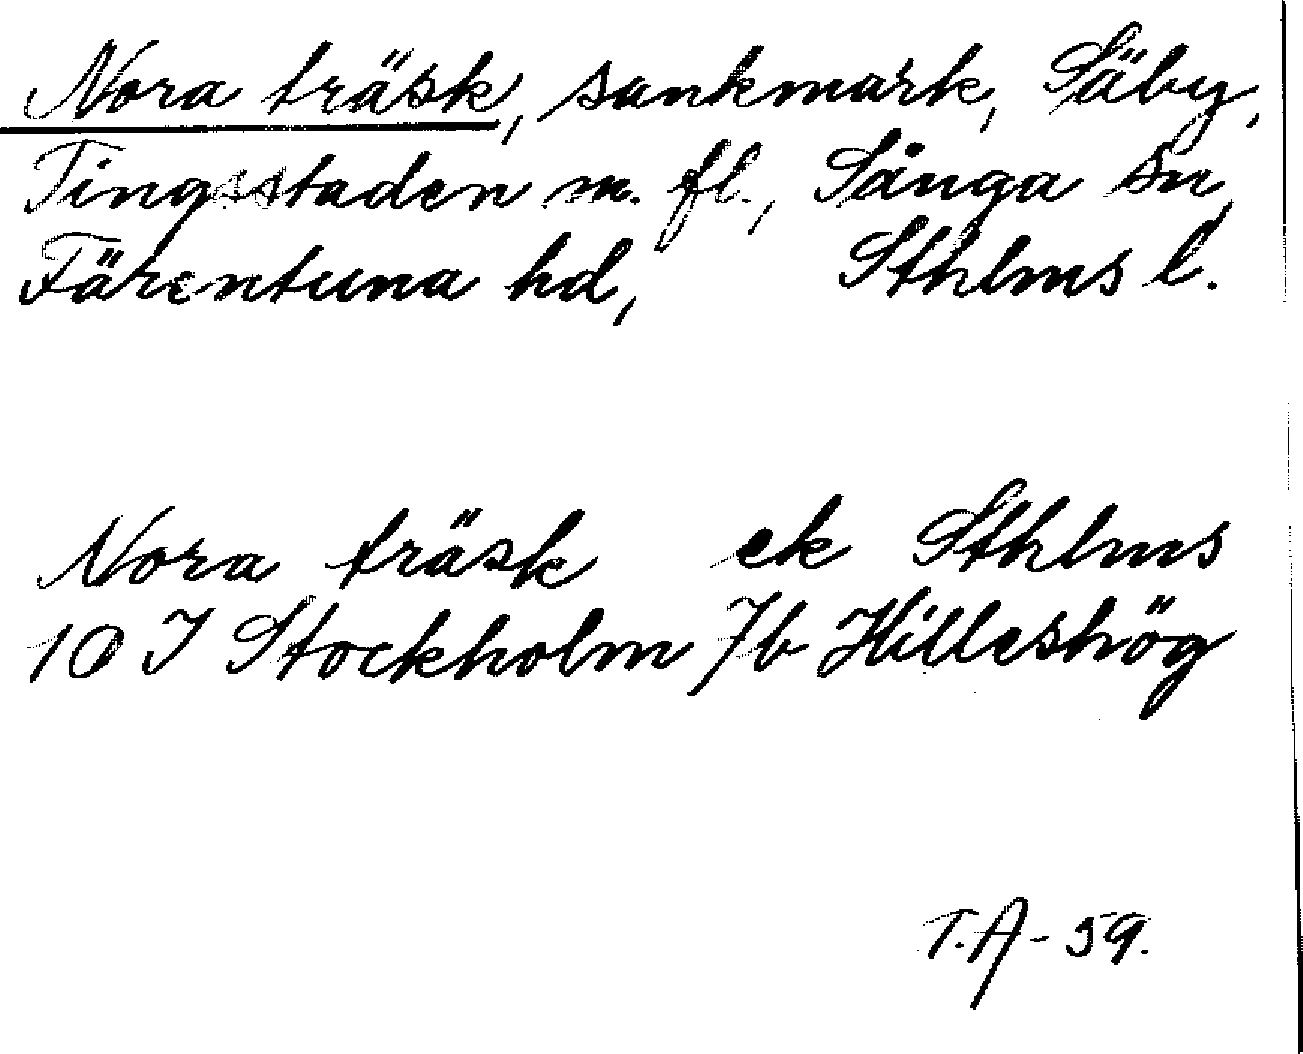 Nora träsk, sankmark, Säby,
Tingsstaden m. fl., Sånga sn,
Färentuna hd, Sthlms l.
Nora träsk ek Sthlms
10 I Stockholm 7b Hilleshög
T.A-59.